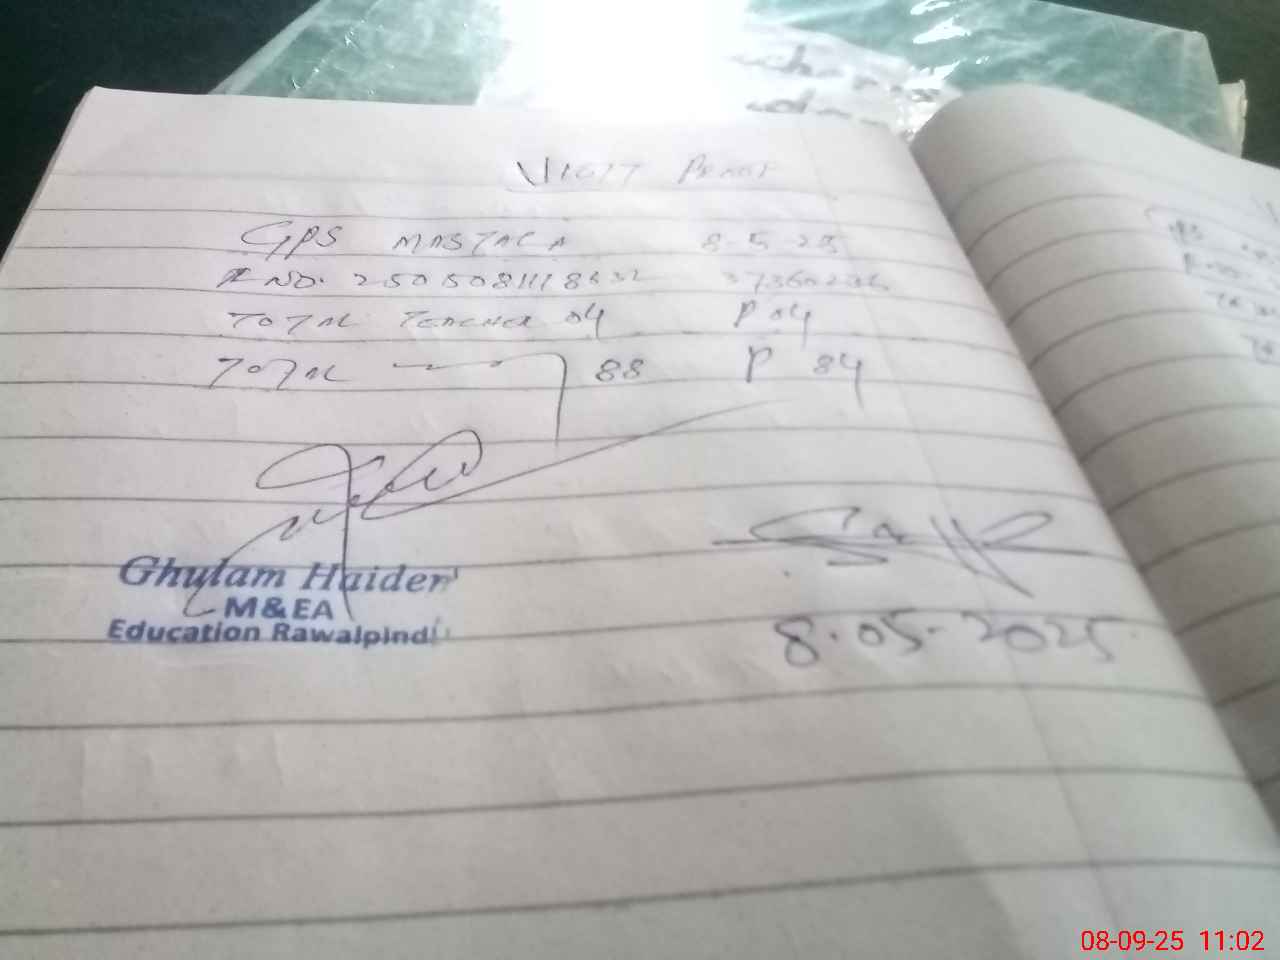 VISIT PROOF
GPS MASTALA 8-5-25
R NO. 2505081118632 37360236
TOTAL TEACHER 04 P 04
TOTAL 88 P 84
Ghulam Haider
M&EA
Education Rawalpindi
8.05.2025
08-09-25 11:02